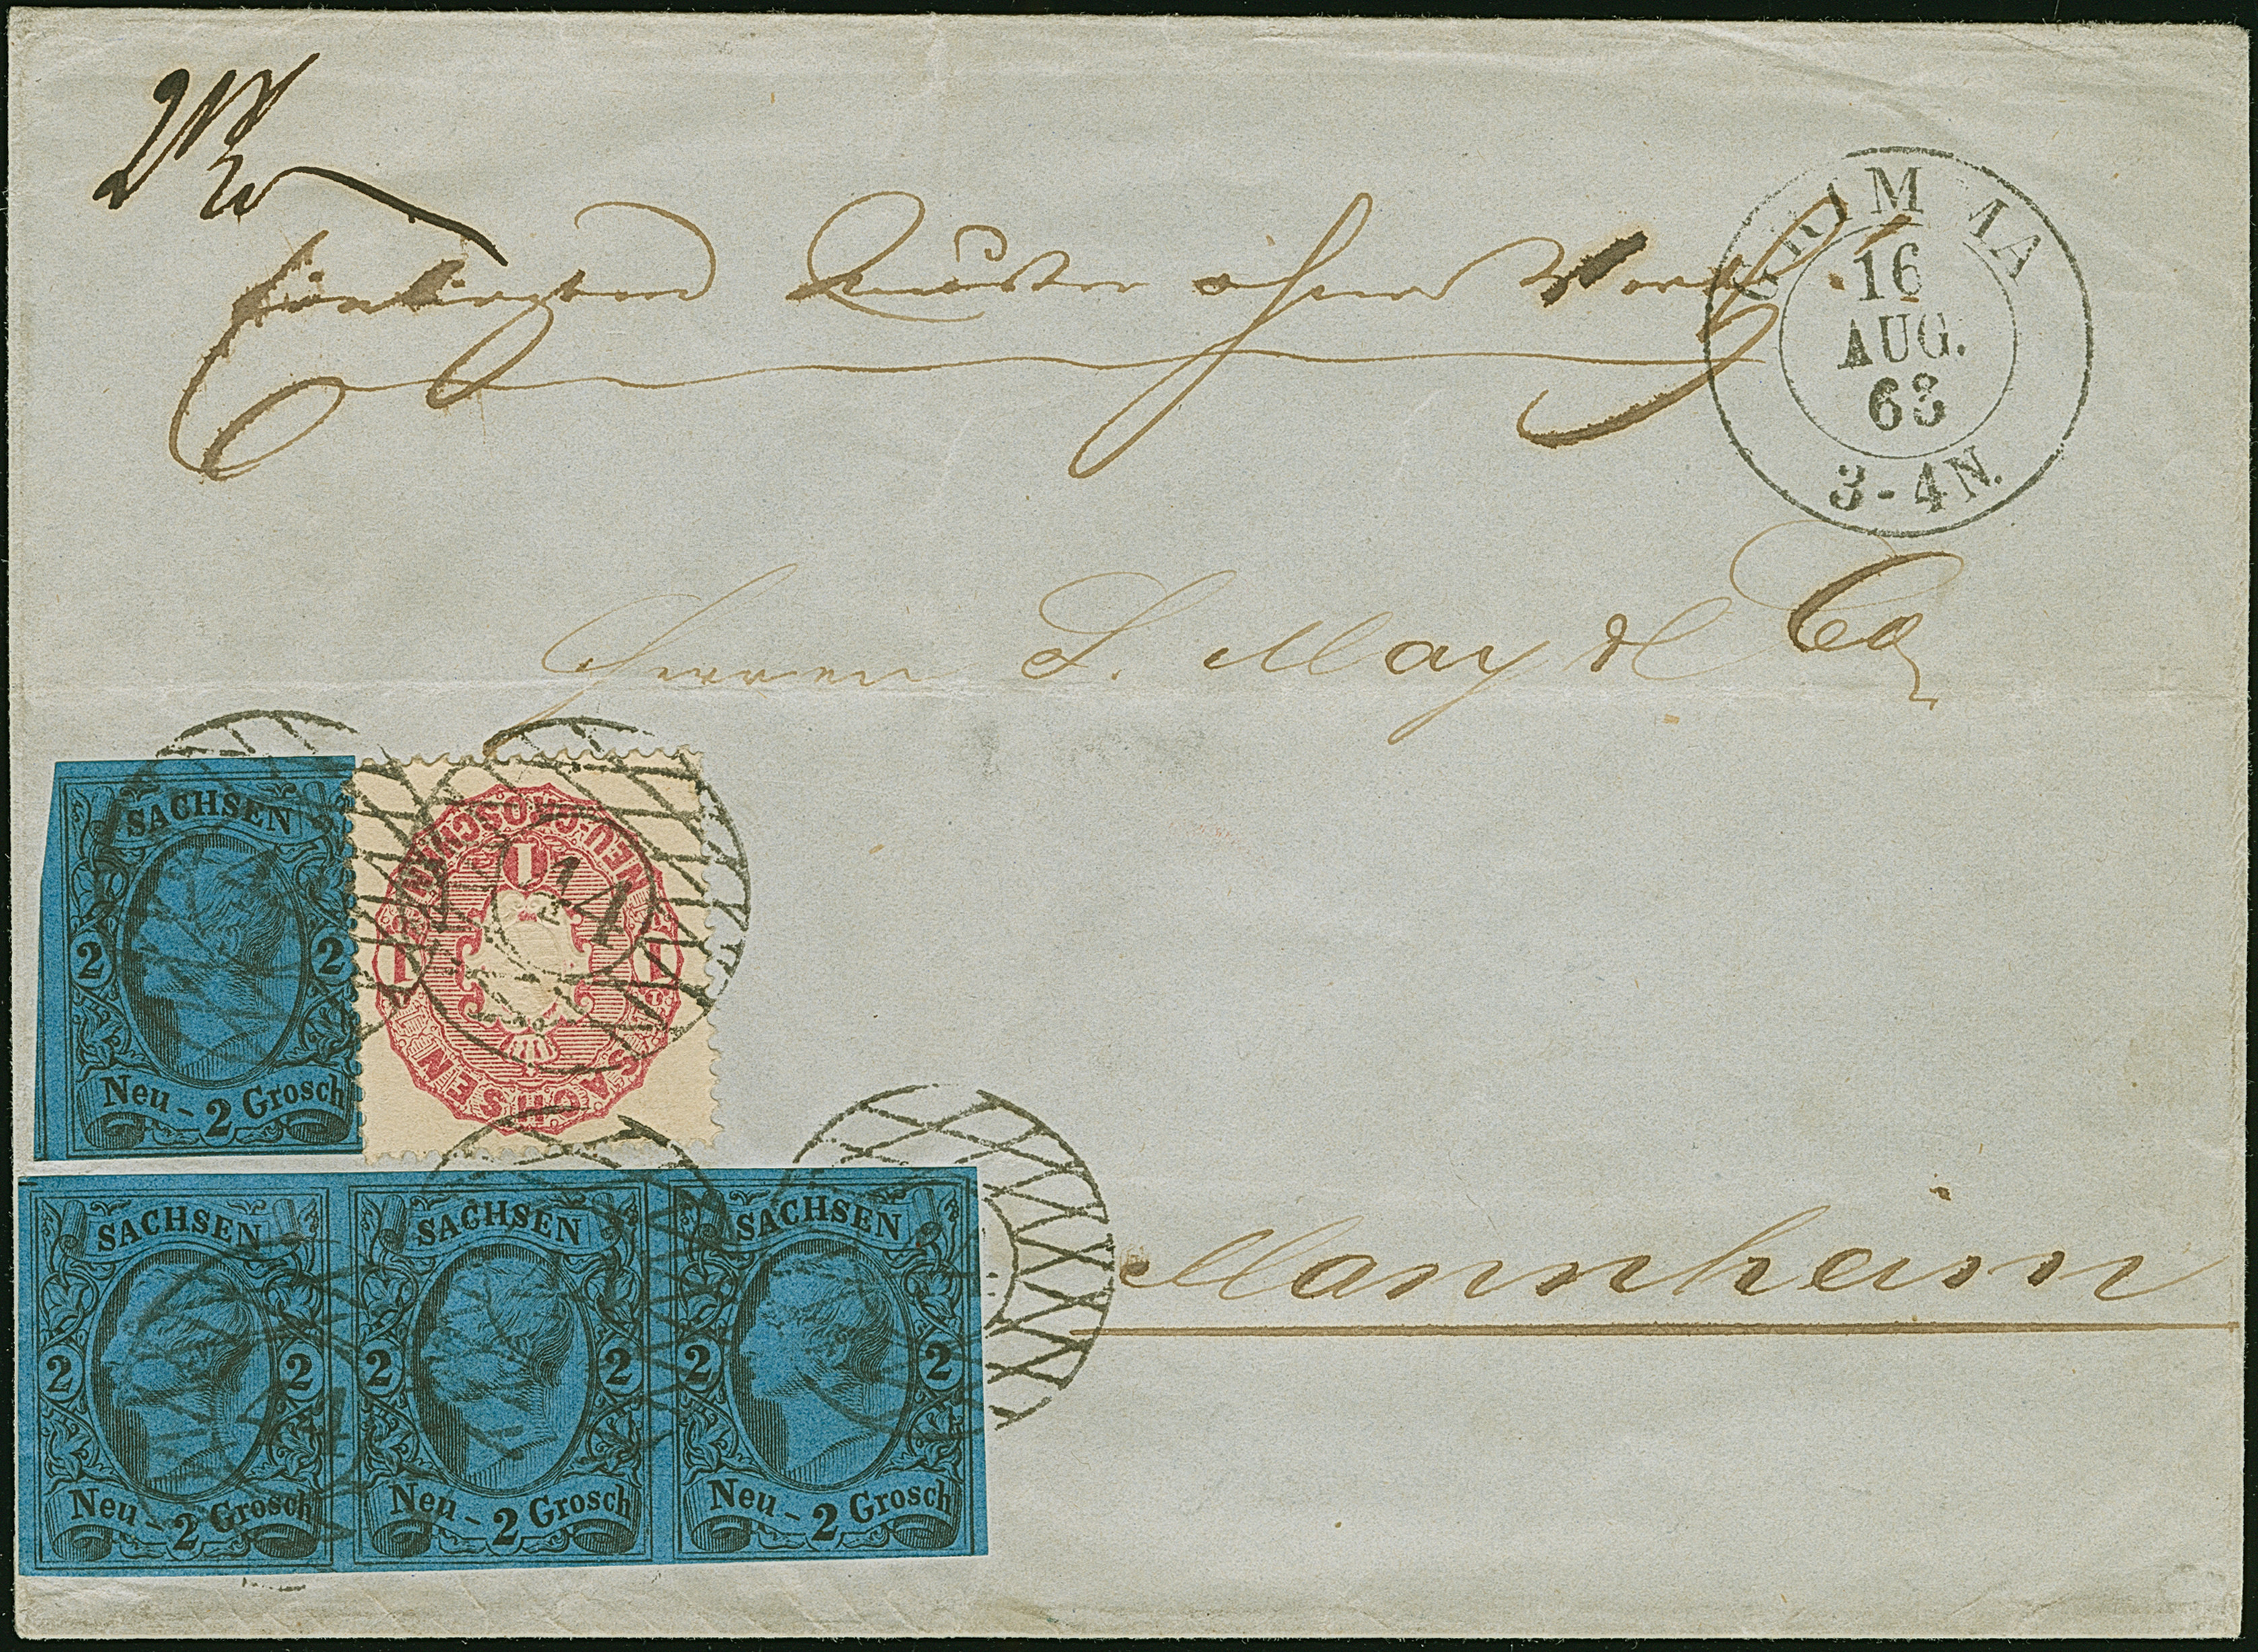 einliegend Muster ohne Werth
GRIMMA
16
AUG.
63
3-4N.
Herren L. May & Co
SACHSEN
2 2
Neu-2 Grosch
NEU-GROSCHEN
1
1 1
SACHSEN
14
SACHSEN
2 2
Neu-2 Grosch
SACHSEN
2 2
Neu-2 Grosch
SACHSEN
2 2
Neu-2 Grosch
Mannheim